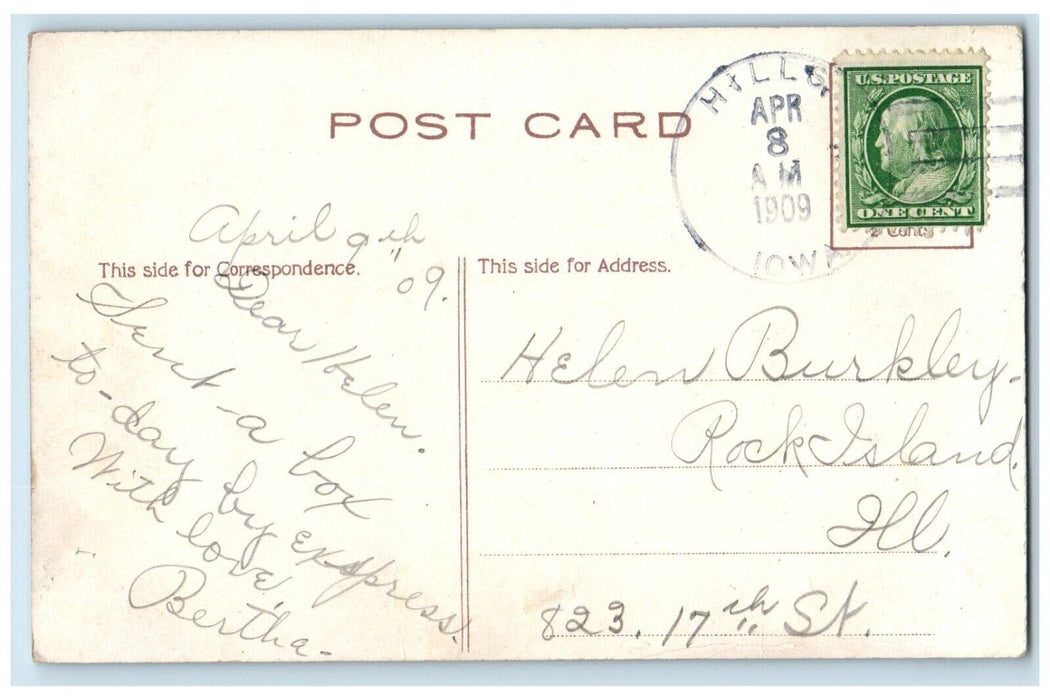 POST CARD
HILLS
APR
8
A M
1909
IOWA
U.S. POSTAGE
ONE CENT
2 Cents
This side for Correspondence.
This side for Address.
April 9th
"09.
Dear Helen.
Sent a box
to-day by express.
With love,
Bertha-
Helen Burkley.
Rock Island,
Ill.
823. 17th St.